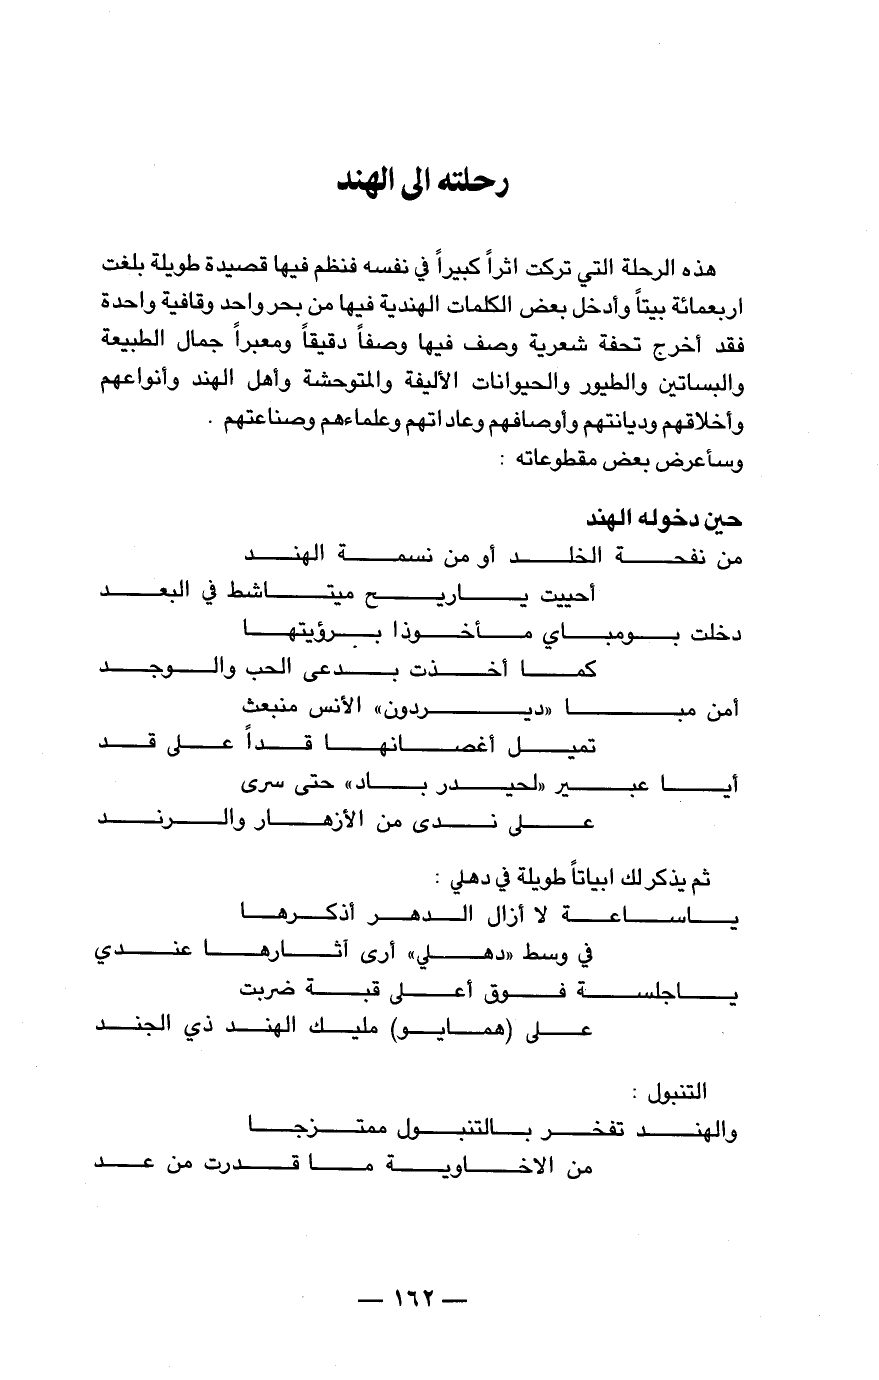 رحلته الى الهند
هذه الرحلة التي تركت اثراً كبيراً في نفسه فنظم فيها قصيدة طويلة بلغت
اربعمائة بيتاً وأدخل بعض الكلمات الهندية فيها من بحر واحد وقافية واحدة
فقد أخرج تحفة شعرية وصف فيها وصفاً دقيقاً ومعبراً جمال الطبيعة
والبساتين والطيور والحيوانات الأليفة والمتوحشة وأهل الهند وأنواعهم
وأخلاقهم وديانتهم وأوصافهم وعاداتهم وعلماءهم وصناعتهم .
وسأعرض بعض مقطوعاته :
حين دخوله الهند
من نفحة الخلد أو من نسمة الهند
أحييت ياريح ميتاشط في البعد
دخلت بومباي مأخوذا برؤيتها
كما أخذت بدعى الحب والوجد
أمن مبا «ديردون» الأنس منبعث
تميل أغصانها قداً على قد
أيا عبير «لحيدر باد» حتى سرى
على ندى من الأزهار والرند
ثم يذكر لك ابياتاً طويلة في دهلي :
ياساعة لا أزال الدهر أذكرها
في وسط «دهلي» أرى آثارها عندي
ياجلسة فوق أعلى قبة ضربت
على (همايو) مليك الهند ذي الجند
التنبول :
والهند تفخر بالتنبول ممتزجا
من الاخاوية ما قدرت من عد
— ١٦٢ —